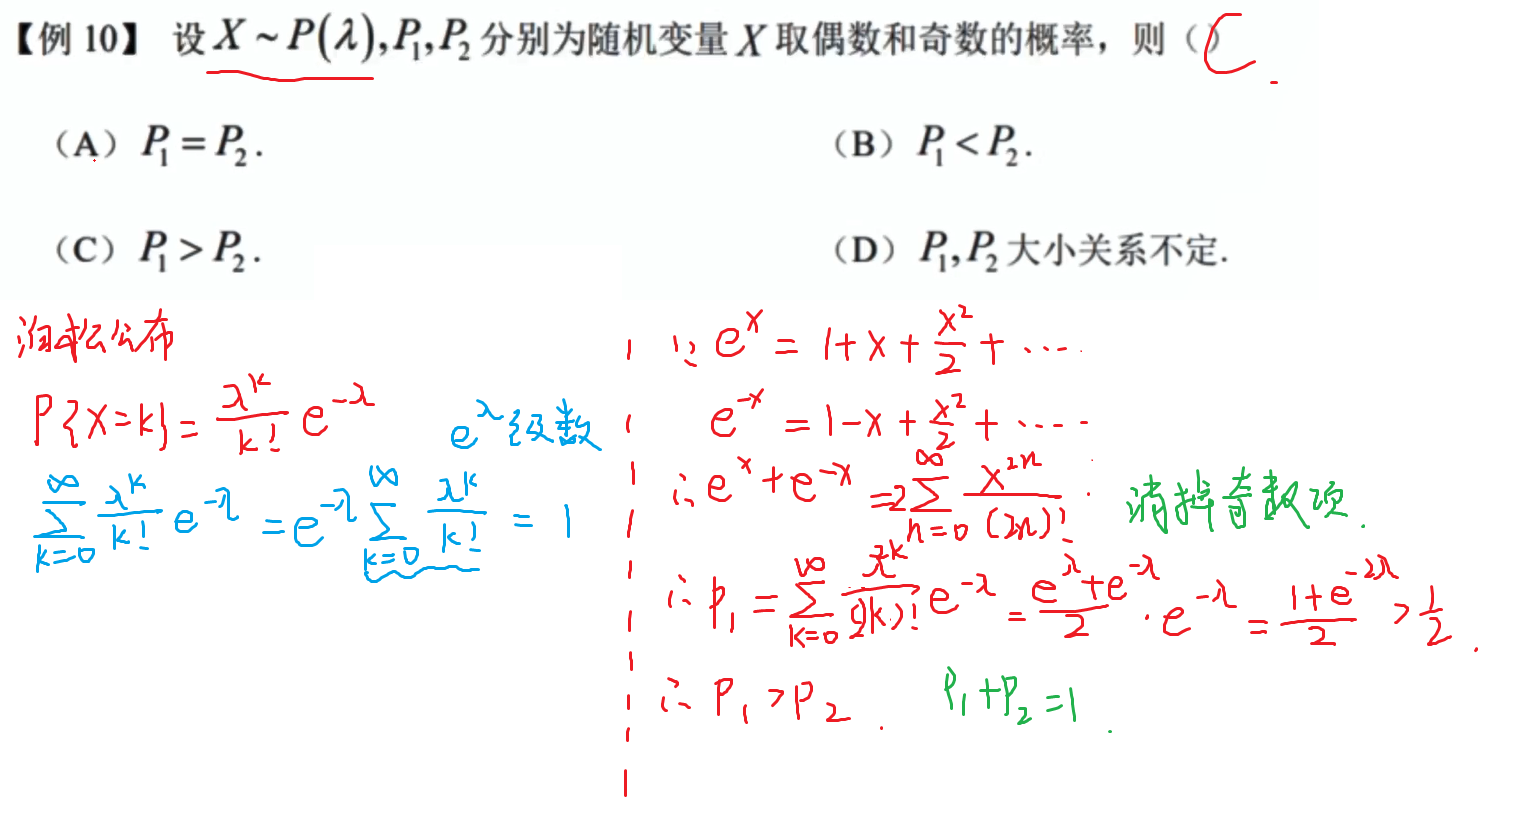 【例 10】 设 X ~ P(λ), P₁, P₂ 分别为随机变量 X 取偶数和奇数的概率，则（）C.
（A）P₁ = P₂.
（B）P₁ < P₂.
（C）P₁ > P₂.
（D）P₁, P₂ 大小关系不定.
泊松分布
P{X=k} = λ^k/k! e^{-λ}
e^λ 级数
∑_{k=0}^{∞} λ^k/k! e^{-λ} = e^{-λ} ∑_{k=0}^{∞} λ^k/k! = 1
∵ e^x = 1+x+x²/2+⋯
e^{-x} = 1-x+x²/2+⋯
∴ e^x+e^{-x} = 2∑_{n=0}^{∞} x^{2n}/(2n)!
消掉奇数项.
∴ P₁ = ∑_{k=0}^{∞} λ^k/(2k)! e^{-λ} = (e^λ+e^{-λ})/2 · e^{-λ} = (1+e^{-2λ})/2 > 1/2.
∴ P₁ > P₂.
P₁+P₂=1.